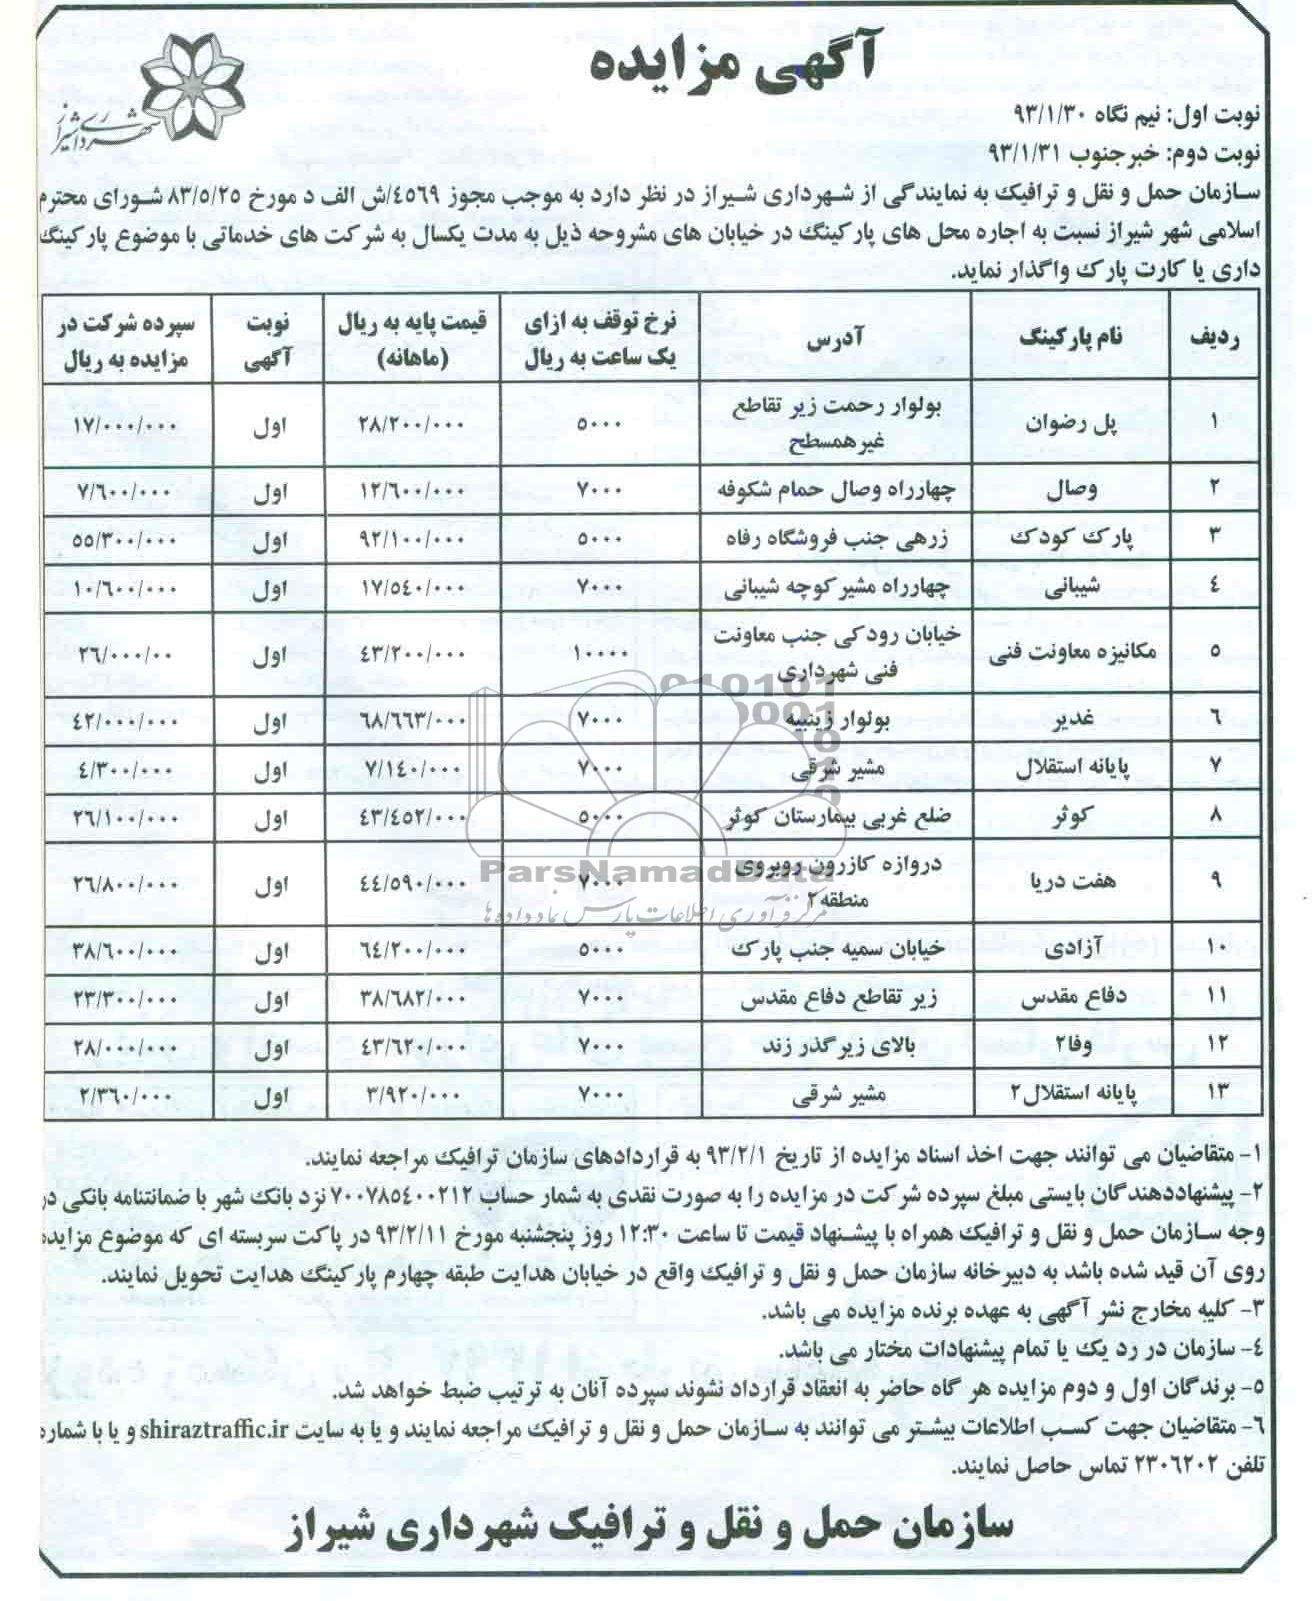 آگهی مزایده
شهرداری شیراز
نوبت اول: نیم نگاه ۹۳/۱/۳۰
نوبت دوم: خبرجنوب ۹۳/۱/۳۱
سازمان حمل و نقل و ترافیک به نمایندگی از شهرداری شیراز در نظر دارد به موجب مجوز ۴۵۶۹/ش الف د مورخ ۸۳/۵/۲۵ شورای محترم
اسلامی شهر شیراز نسبت به اجاره محل های پارکینگ در خیابان های مشروحه ذیل به مدت یکسال به شرکت های خدماتی با موضوع پارکینگ
داری یا کارت پارک واگذار نماید.
ردیف | نام پارکینگ | آدرس | نرخ توقف به ازای یک ساعت به ریال | قیمت پایه به ریال (ماهانه) | نوبت آگهی | سپرده شرکت در مزایده به ریال
۱ | پل رضوان | بولوار رحمت زیر تقاطع غیرهمسطح | ۵۰۰۰ | ۲۸/۲۰۰/۰۰۰ | اول | ۱۷/۰۰۰/۰۰۰
۲ | وصال | چهارراه وصال حمام شکوفه | ۷۰۰۰ | ۱۲/۶۰۰/۰۰۰ | اول | ۷/۶۰۰/۰۰۰
۳ | پارک کودک | زرهی جنب فروشگاه رفاه | ۵۰۰۰ | ۹۲/۱۰۰/۰۰۰ | اول | ۵۵/۳۰۰/۰۰۰
۴ | شیبانی | چهارراه مشیر کوچه شیبانی | ۷۰۰۰ | ۱۷/۵۴۰/۰۰۰ | اول | ۱۰/۶۰۰/۰۰۰
۵ | مکانیزه معاونت فنی | خیابان رودکی جنب معاونت فنی شهرداری | ۱۰۰۰۰ | ۴۳/۲۰۰/۰۰۰ | اول | ۲۶/۰۰۰/۰۰
۶ | غدیر | بولوار زینبیه | ۷۰۰۰ | ۶۸/۶۶۳/۰۰۰ | اول | ۴۲/۰۰۰/۰۰۰
۷ | پایانه استقلال | مشیر شرقی | ۷۰۰۰ | ۷/۱۴۰/۰۰۰ | اول | ۴/۳۰۰/۰۰۰
۸ | کوثر | ضلع غربی بیمارستان کوثر | ۵۰۰۰ | ۴۳/۴۵۲/۰۰۰ | اول | ۲۶/۱۰۰/۰۰۰
۹ | هفت دریا | دروازه کازرون روبروی منطقه۲ | ۷۰۰۰ | ۴۴/۵۹۰/۰۰۰ | اول | ۲۶/۸۰۰/۰۰۰
۱۰ | آزادی | خیابان سمیه جنب پارک | ۵۰۰۰ | ۶۴/۲۰۰/۰۰۰ | اول | ۳۸/۶۰۰/۰۰۰
۱۱ | دفاع مقدس | زیر تقاطع دفاع مقدس | ۷۰۰۰ | ۳۸/۶۸۲/۰۰۰ | اول | ۲۳/۳۰۰/۰۰۰
۱۲ | وفا۲ | بالای زیرگذر زند | ۷۰۰۰ | ۴۳/۶۲۰/۰۰۰ | اول | ۲۸/۰۰۰/۰۰۰
۱۳ | پایانه استقلال۲ | مشیر شرقی | ۷۰۰۰ | ۳/۹۲۰/۰۰۰ | اول | ۲/۳۶۰/۰۰۰
ParsNamadData
مرکز فرآوری اطلاعات پارس نماد داده ها
۱- متقاضیان می توانند جهت اخذ اسناد مزایده از تاریخ ۹۳/۲/۱ به قراردادهای سازمان ترافیک مراجعه نمایند.
۲- پیشنهاددهندگان بایستی مبلغ سپرده شرکت در مزایده را به صورت نقدی به شمار حساب ۷۰۰۷۸۵۴۰۰۲۱۲ نزد بانک شهر یا ضمانتنامه بانکی در
وجه سازمان حمل و نقل و ترافیک همراه با پیشنهاد قیمت تا ساعت ۱۲:۳۰ روز پنجشنبه مورخ ۹۳/۲/۱۱ در پاکت سربسته ای که موضوع مزایده
روی آن قید شده باشد به دبیرخانه سازمان حمل و نقل و ترافیک واقع در خیابان هدایت طبقه چهارم پارکینگ هدایت تحویل نمایند.
۳- کلیه مخارج نشر آگهی به عهده برنده مزایده می باشد.
۴- سازمان در رد یک یا تمام پیشنهادات مختار می باشد.
۵- برندگان اول و دوم مزایده هر گاه حاضر به انعقاد قرارداد نشوند سپرده آنان به ترتیب ضبط خواهد شد.
۶- متقاضیان جهت کسب اطلاعات بیشتر می توانند به سازمان حمل و نقل و ترافیک مراجعه نمایند و یا به سایت shiraztraffic.ir و یا با شماره
تلفن ۲۳۰۶۲۰۲ تماس حاصل نمایند.
سازمان حمل و نقل و ترافیک شهرداری شیراز